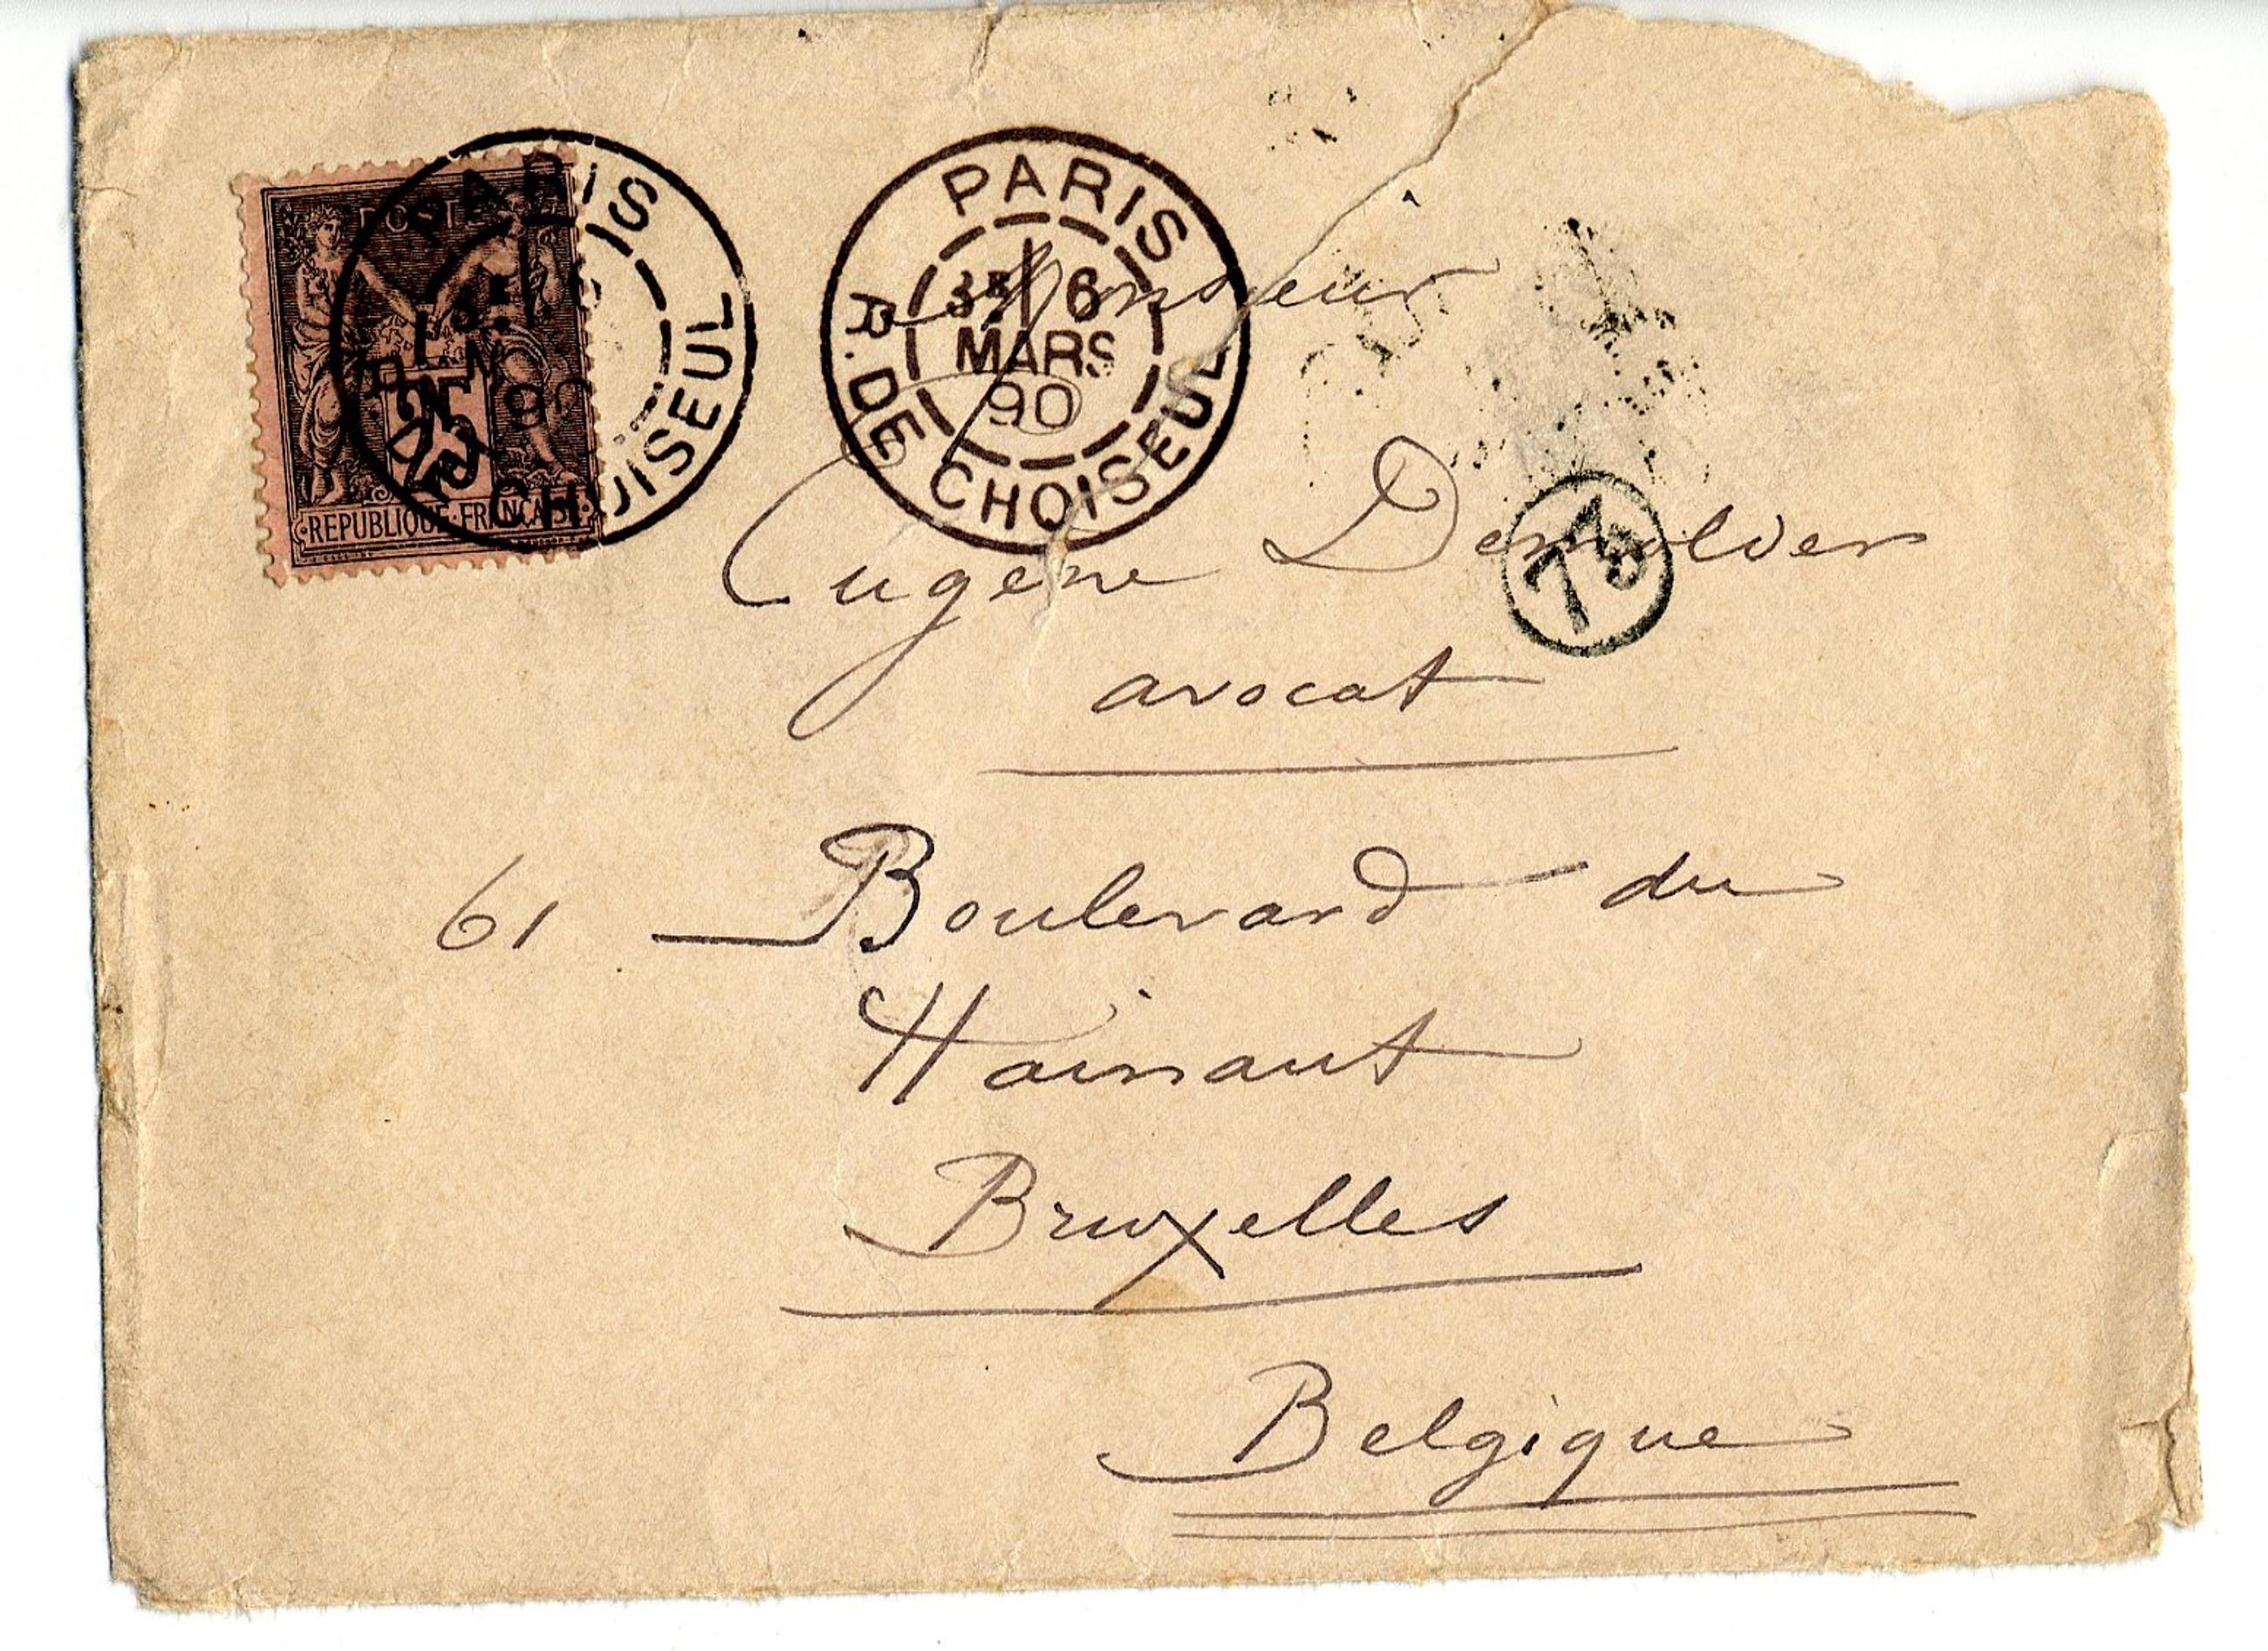 POSTES
25
REPUBLIQUE FRANÇAISE
PARIS
90
R. DE CHOISEUL
PARIS
3E 6
MARS
90
R. DE CHOISEUL
73
Monsieur
Eugène Demolder
avocat
61 Boulevard du
Hainaut
Bruxelles
Belgique